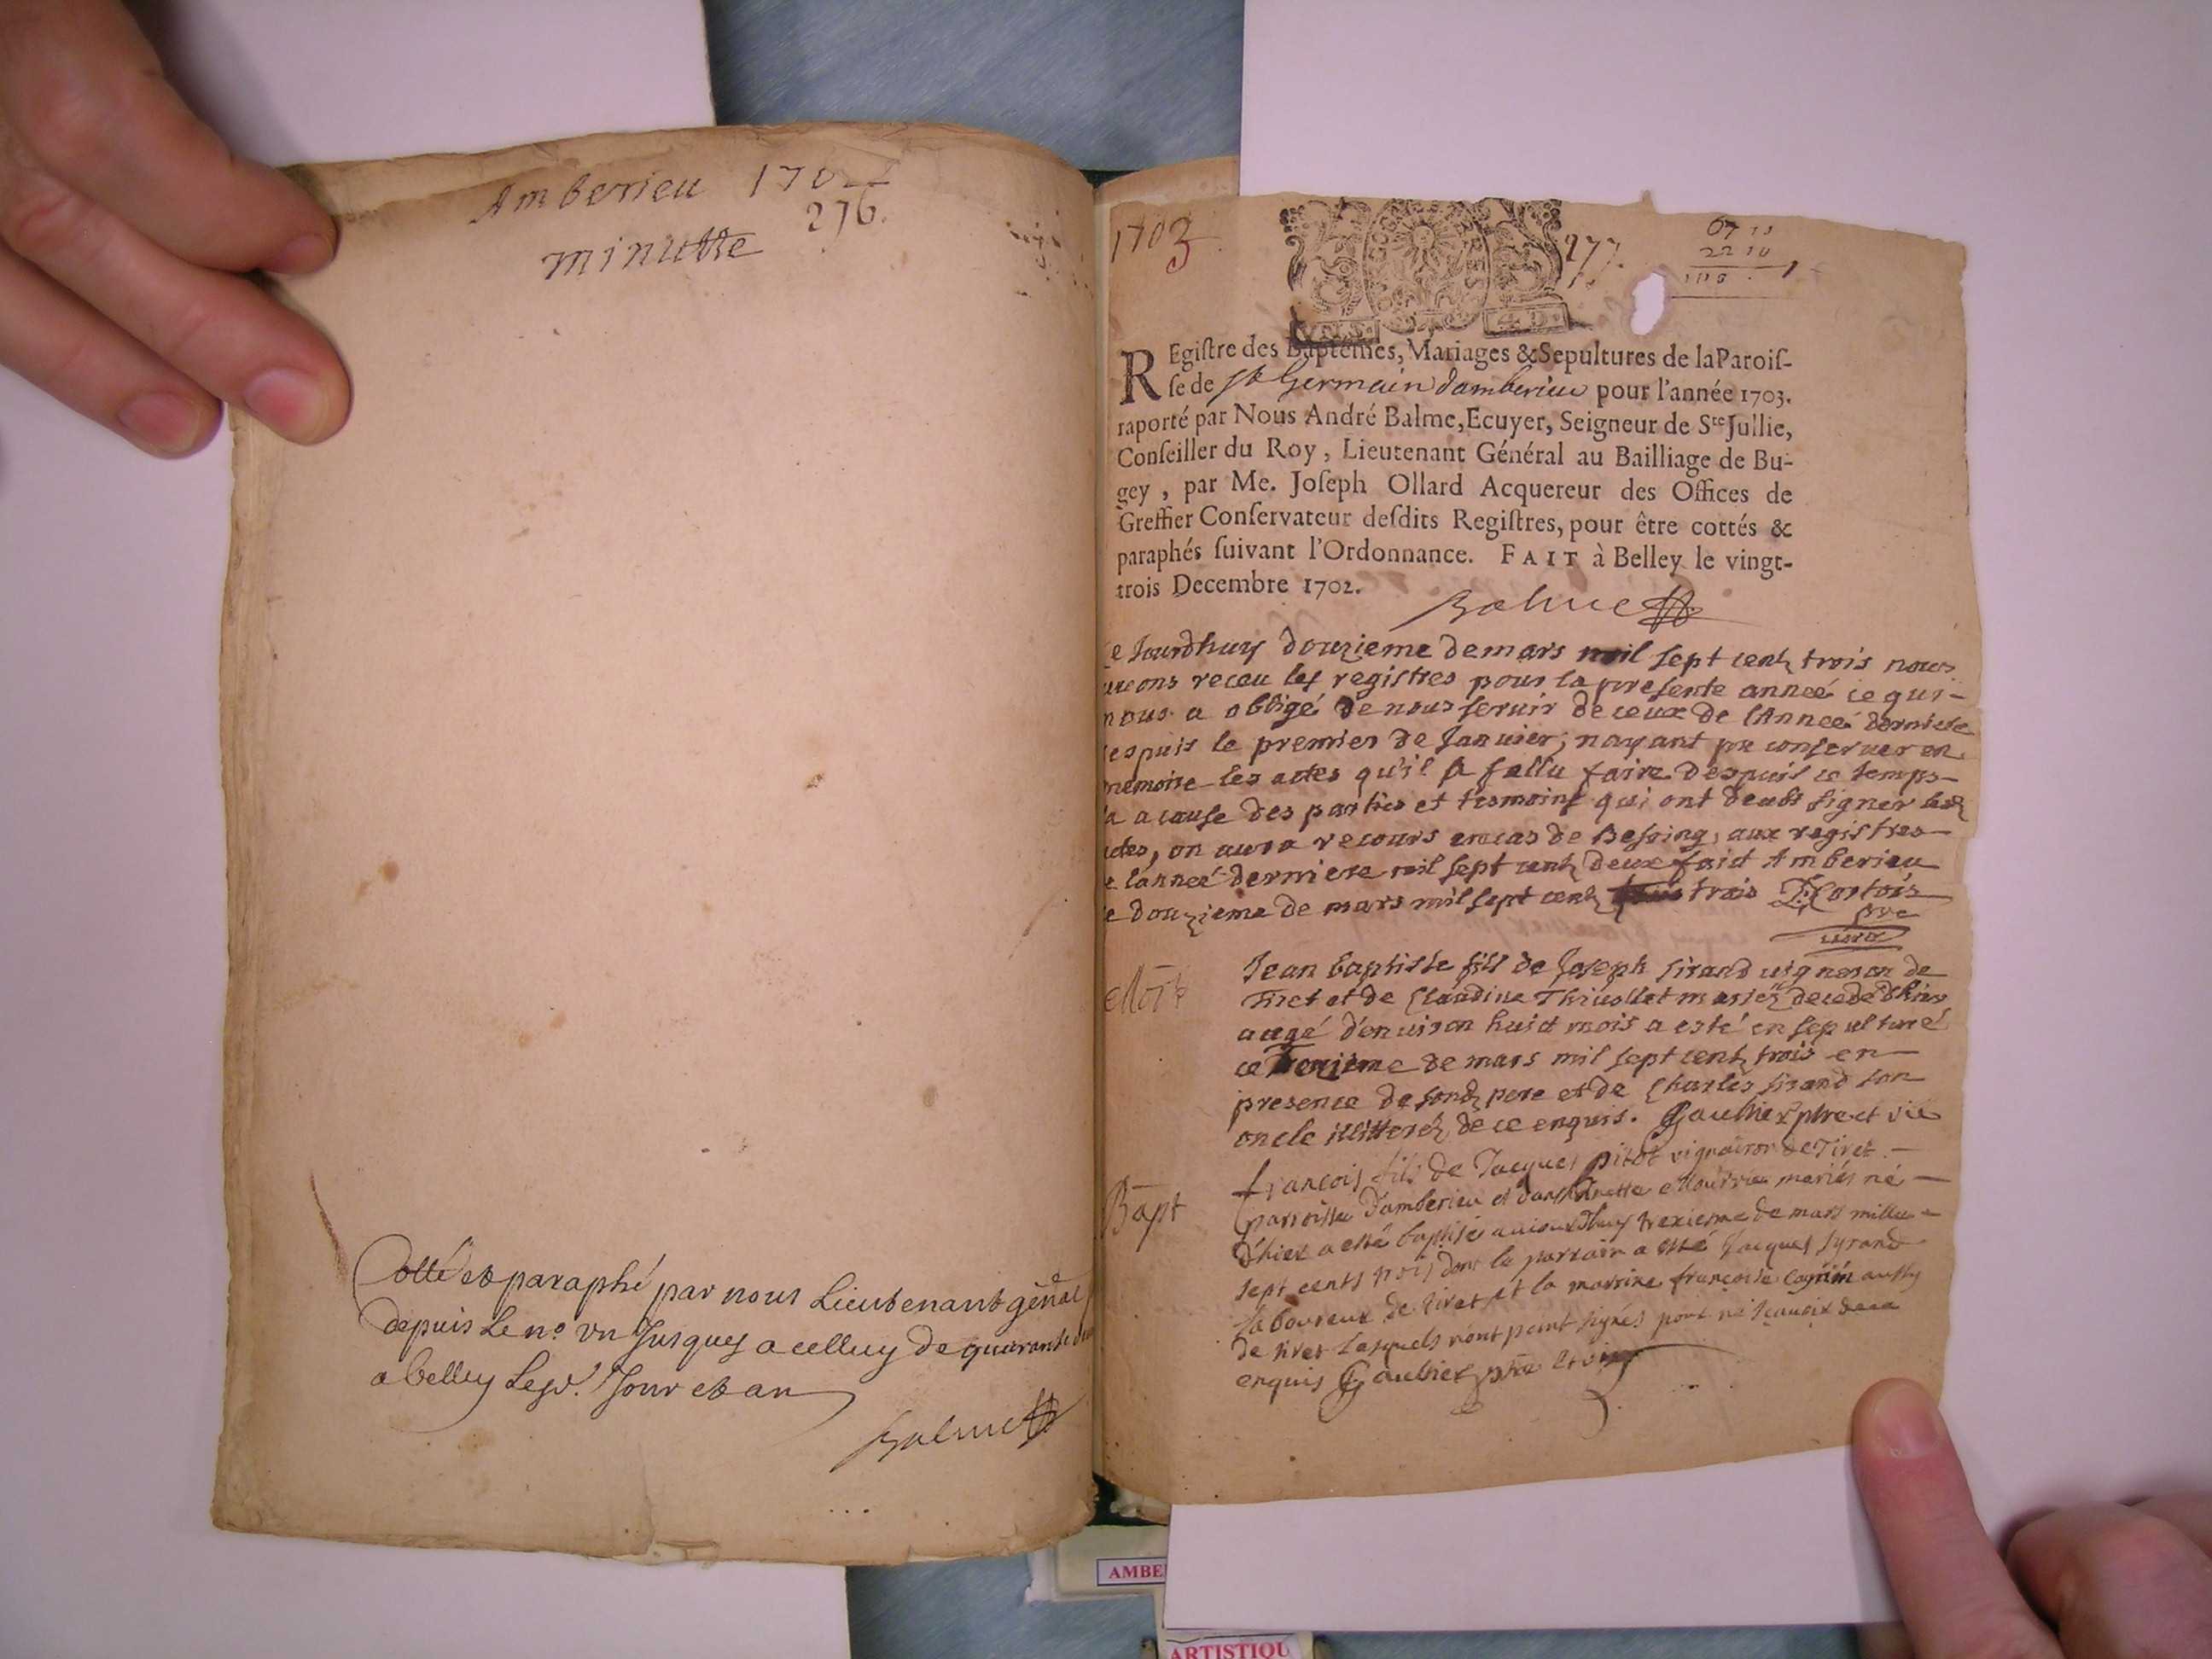 Amberieu 1702
276.
minutte
Cotté et paraphé par nous Lieutenant genal
depuis Le no. un Jusques a celluy de quarante
a belley Lesd. Jour et an
Balme
1703
277.
67 11
22 10
GEN.
4.D.
REgiſtre des Baptêmes, Mariages & Sepultures de la Paroiſ-
ſe de St Germain damberieu pour l'année 1703.
raporté par Nous André Balme, Ecuyer, Seigneur de Ste Jullie,
Conſeiller du Roy, Lieutenant Général au Bailliage de Bu-
gey, par Me. Joſeph Ollard Acquereur des Offices de
Greffier Conſervateur deſdits Regiſtres, pour être cottés &
paraphés ſuivant l'Ordonnance. FAIT à Belley le vingt-
trois Decembre 1702.
Balme
ce Jourdhuy douzieme de mars mil sept cent trois nous
avons receu les registres pour la presente anneé ce qui
nous a obligé de nous servir de ceux de l'Anneé derniere
despuis le premier de Janvier; nayant pu conserver en
memoire les actes qu'il a fallu faire despuis ce temps
la a cause des parties et tesmoins qui ont deubt signer lesd
actes, on aura recours en cas de Besoing aux registres
de l'anneé derniere mil sept cent deux faict Amberieu
le douzieme de mars mil sept cent trois
pre
curé
Mort
Jean baptiste fils de Joseph sirand vigneron de
Tiret et de Claudine Thivollet mariez decedé d'hier
aagé d'environ huict mois a esté ensepulturé
ce Trezieme de mars mil sept cent trois en
presence de sond pere et de Charles sirand son
oncle illitterez de ce enquis. Gaulthier pbre et vic
Bapt
françois fils de Jacques pitot vigneron de Tiret
parroisse d'amberieu et d'anthonette mariés né
d'hier a esté baptisé aujourdhuy trezieme de mars mille
sept cents trois dont le parrain a esté Jacques syrand
laboureur de tiret et la marrine françoise aussy
de tiret Lesquels n'ont point signés pour ne scavoir de ce
enquis Gaulthier pbre et vic
AMBE
ARTISTIQU